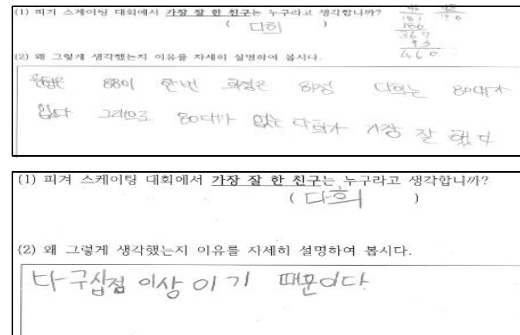 (1) 피겨 스케이팅 대회에서 가장 잘 한 친구는 누구라고 생각합니까?
( 다희 )
181
180
367
93
460
(2) 왜 그렇게 생각했는지 이유를 자세히 설명하여 봅시다.
88이 다희는 80대가
있다 그래므로 80대가 없는 다희가 가장 잘 했다
(1) 피겨 스케이팅 대회에서 가장 잘 한 친구는 누구라고 생각합니까?
( 다희 )
(2) 왜 그렇게 생각했는지 이유를 자세히 설명하여 봅시다.
다 구십점 이상이기 때문이다